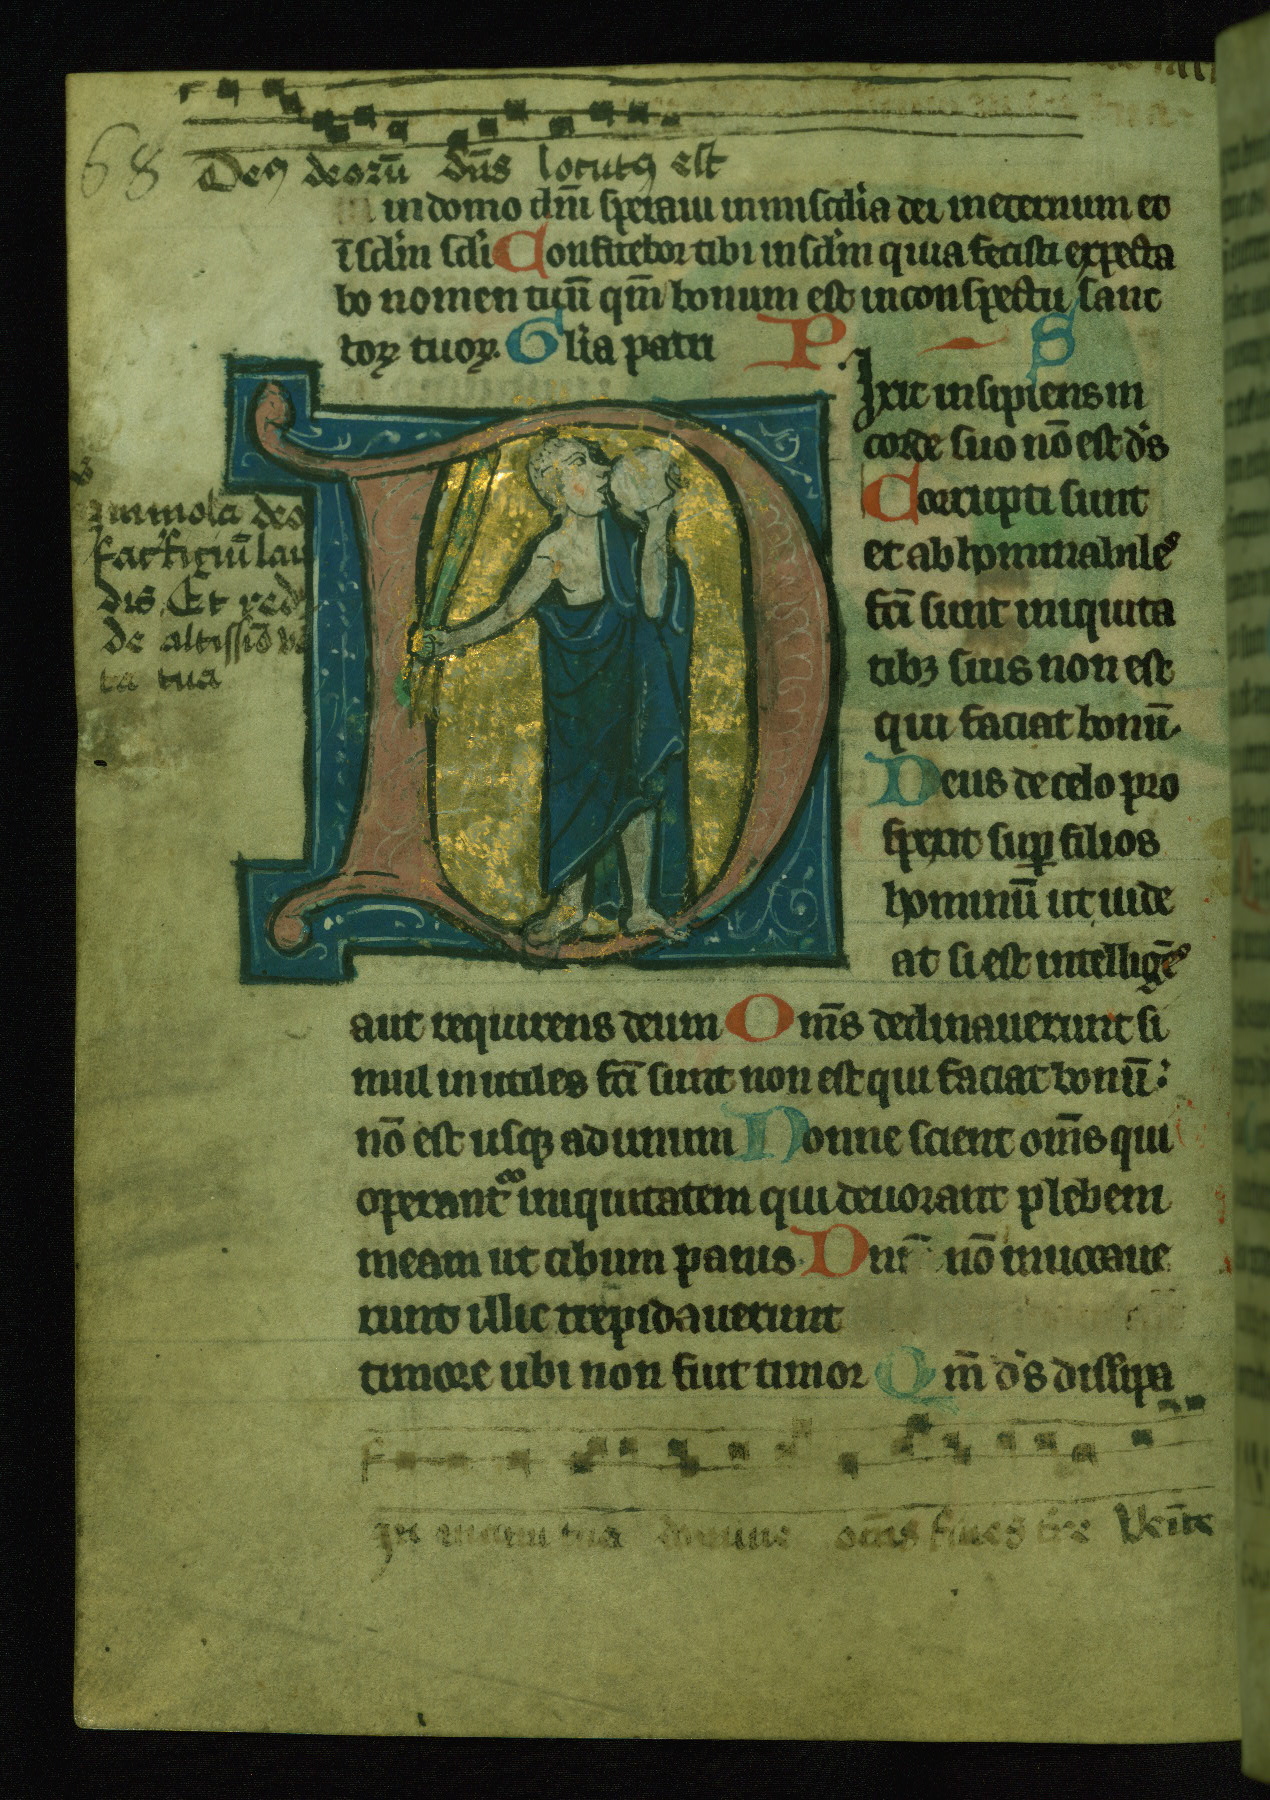 68
Deꝰ deorū dn̄s locutꝰ est
in domo dn̄i speraui in mis̄cdia dei in eternum et
ī scl̄m scl̄i Confitebor tibi in scl̄m quia fecisti et expecta
bo nomen tuū qm̄ bonum est in conspectu sanc
toꝝ tuoꝝ. Gl̄ia patri P S
Ixit insipiens in
corde suo nō est ds̄
Corrupti sunt
et abhominabiles
fcī sunt iniquita
tibꝫ suis non est
qui faciat bonū.
Deus de celo pro
spexit suꝑ filios
hominū ut uide
at si est intelligēs
aut requirens deum Om̄s declinauerunt si
mul inutiles fcī sunt non est qui faciat bonū:
nō est usqꝫ ad unum Nonne scient om̄s qui
operant᷑ iniquitatem qui deuorant plebem
meam ut cibum panis. Dn̄m nō inuocaue
runt illic trepidauerunt
timore ubi non fuit timor Qm̄ ds̄ dissipa
immola deo
sacrficiū lau
dis. Et red
de altissīo uo
ta tua
domine om̄s fines tr̄e Venite